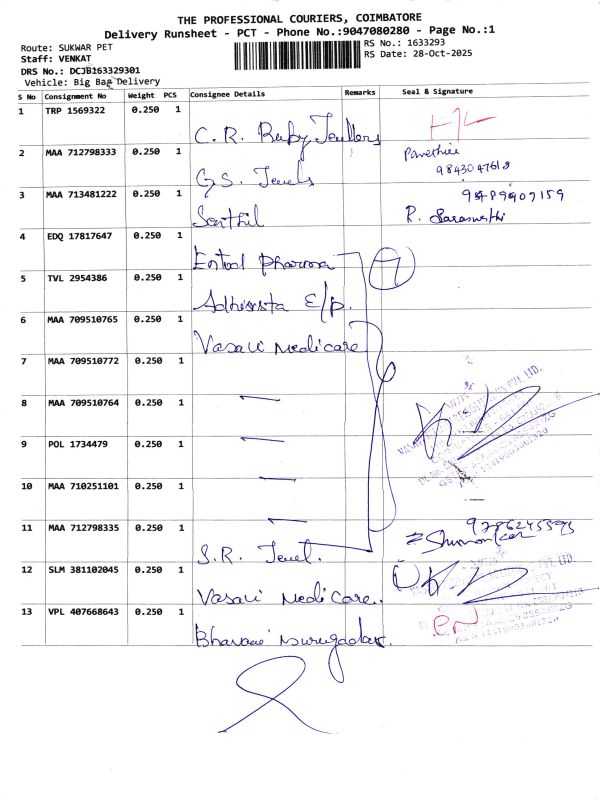 THE PROFESSIONAL COURIERS, COIMBATORE
Delivery Runsheet - PCT - Phone No.:9047080280 - Page No.:1
Route: SUKWAR PET
RS No.: 1633293
Staff: VENKAT
RS Date: 28-Oct-2025
DRS No.: DCJB163329301
Vehicle: Big Bag Delivery
S No Consignment No Weight PCS Consignee Details Remarks Seal & Signature
1 TRP 1569322 0.250 1
C. R. Ruby Jewllers
2 MAA 712798333 0.250 1
G.S. Jewels
9843047618
3 MAA 713481222 0.250 1
Senthil
R. Saraswathi
4 EDQ 17817647 0.250 1
Entod Pharma
7
5 TVL 2954386 0.250 1
E/P.
6 MAA 709510765 0.250 1
Vasavi Medicare
7 MAA 709510772 0.250 1
8 MAA 709510764 0.250 1
9 POL 1734479 0.250 1
10 MAA 710251101 0.250 1
11 MAA 712798335 0.250 1
S.R. Jewel.
9786245593
12 SLM 381102045 0.250 1
Vasavi Medicare.
13 VPL 407668643 0.250 1